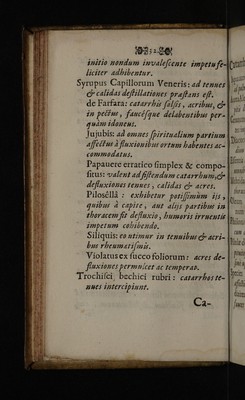 32
initio nondum invalescente impetu fe-
liciter adhibentur.
Syrupus Capillorum Veneris: ad tenues
& calidas destillationes præstans est.
de Farfara: catarrhis falsis, acribus, &
in pectus, faucésque delabentibus per-
quàm idoneus.
Jujubis: ad omnes spiritualium partium
affectus à fluxionibus ortum habentes ac-
commodatus.
Papavere erratico simplex & compo-
situs: valent ad sistendum catarrhum, &
defluxiones tenues, calidas & acres.
Pilosellâ: exhibetur potissimùm iis,
quibus à capite, aut aliis partibus in
thoracem fit defluxio, humoris irruentis
impetum cohibendo.
Siliquis: eo utimur in tenuibus & acri-
bus rheumatismis.
Violatus ex succo foliorum: acres de-
fluxiones permulcet ac temperat.
Trochisci bechici rubri: catarrhos te-
nues intercipiunt.
Ca-